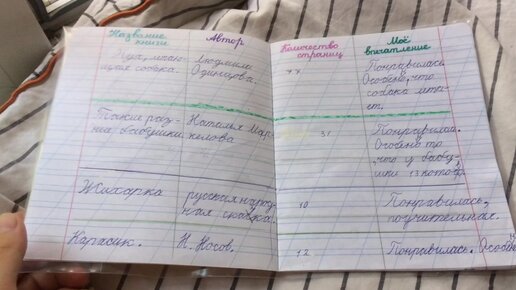 Название книги
Автор
Количество страниц
Моё впечатление
Пух, летаю-
щая собака.
Людмила
Одинцова.
77
Понравилась
Особено, что
собака
ет.
Такие раз-
ные бабушки
Наталья
келова
31
Понравилась.
Особено то
что у бабу-
шки 13 котов.
Жихарка
русская народ
ная сказка.
10
Понравилась,
поучительная.
Карасик.
Н. Носов.
12
Понравилась. Особен